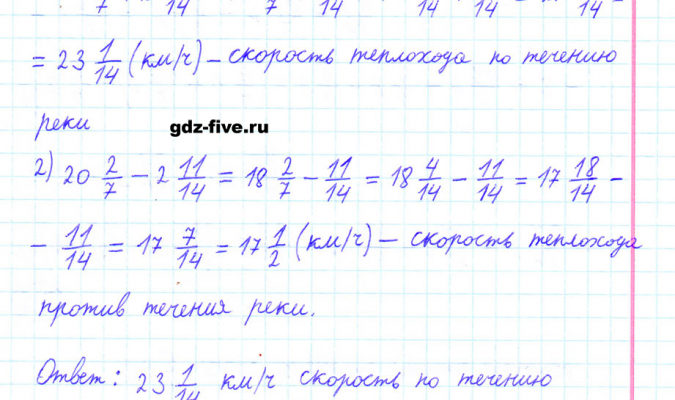 7 14 14 14 14 14 -
= 23 1/14 (км/ч) – скорость теплохода по течению
реки
gdz-five.ru
2) 20 2/7 − 2 11/14 = 18 2/7 − 11/14 = 18 4/14 − 11/14 = 17 18/14 −
− 11/14 = 17 7/14 = 17 1/2 (км/ч) – скорость теплохода
против течения реки.
Ответ: 23 1/14 км/ч скорость по течению